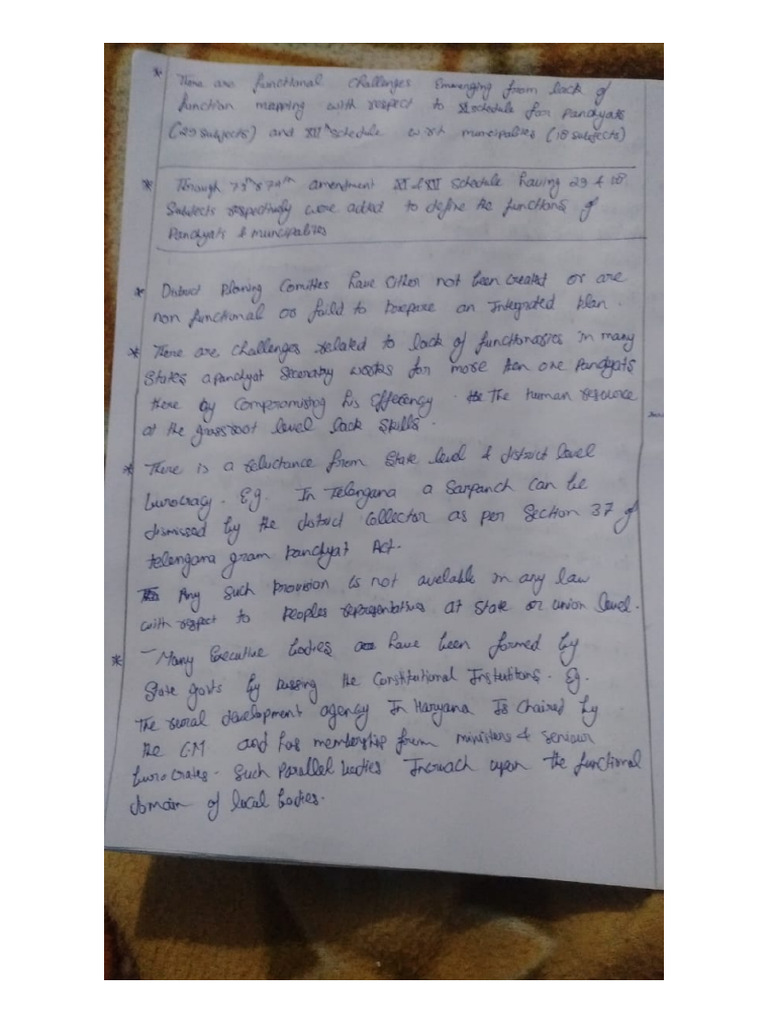 * There are functional challenges Emmerging from lack of
function mapping with respect to XI schedule for Pandyats
(29 subjects) and XII th schedule w.r.t muncipalities (18 subjects)
* Through 73rd & 74th amendment XI & XII schedule having 29 & 18
Subjects respectively were added to define the functions of
Pandyats & muncipalites
* District Planing Comittes have either not been created or are
non functional or faild to prepare an Integrated plan.
* There are challenges related to lack of functionaries in many
States a pandyat Secretary works for more then one Pandyats
there by Compromisting his efferency. The human resource
at the grassroot level lack skills.
* There is a reluctance from State level & district level
burocracy. Eg. In Telangana a Sarpanch can be
dismissed by the district Collector as per Section 37 of
telengana gram Pandyat Act.
Any such provision is not avelable in any law
with respect to Peoples representatives at State or union level.
* - Many Executive bodies have been formed by
State govts by passing the Constitutional Institutions. Eg.
The rural development agency In Haryana Is Chaired by
the CM and has membership from ministers & seniour
burocrates. Such Parallel bodies Incroach upon the functional
domain of local bodies.